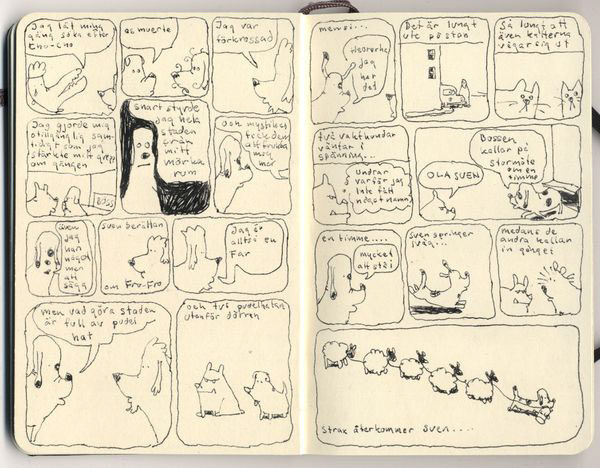 Jag låt min
gäng söka efter
Cho-cho
os muerte
Jag var
förkrossad
Jag gjorde mig
otillgänglig sam-
tidigt som jag
stärkte mitt grepp
om gängen
BOSS
snart styrde
jag hela
staden
från
mitt
mörka
rum
och mystiken
fick dem
att frukta
mig
mer
även
jag
har
något
men
att
säga
Sven berättar
om Fro-Fro
Jag är
alltså en
Far
men vad göra staden
är full av pudel
hat
och två pudelhatare
utanför dörren
men si...
jag
har
dött
Det är lungt
ute på stan
Så lungt att
även katterna
vågar sig ut
två vakthundar
väntar i
spänning...
Undrar
varför jag
inte fått
något namn
OLA SVEN
Bossen
kallar på
stormöte
om en
timme
en timme....
mycket
att stå i
Sven springer
iväg...
medans de
andra kollar
in gänget
strax återkommer Sven....